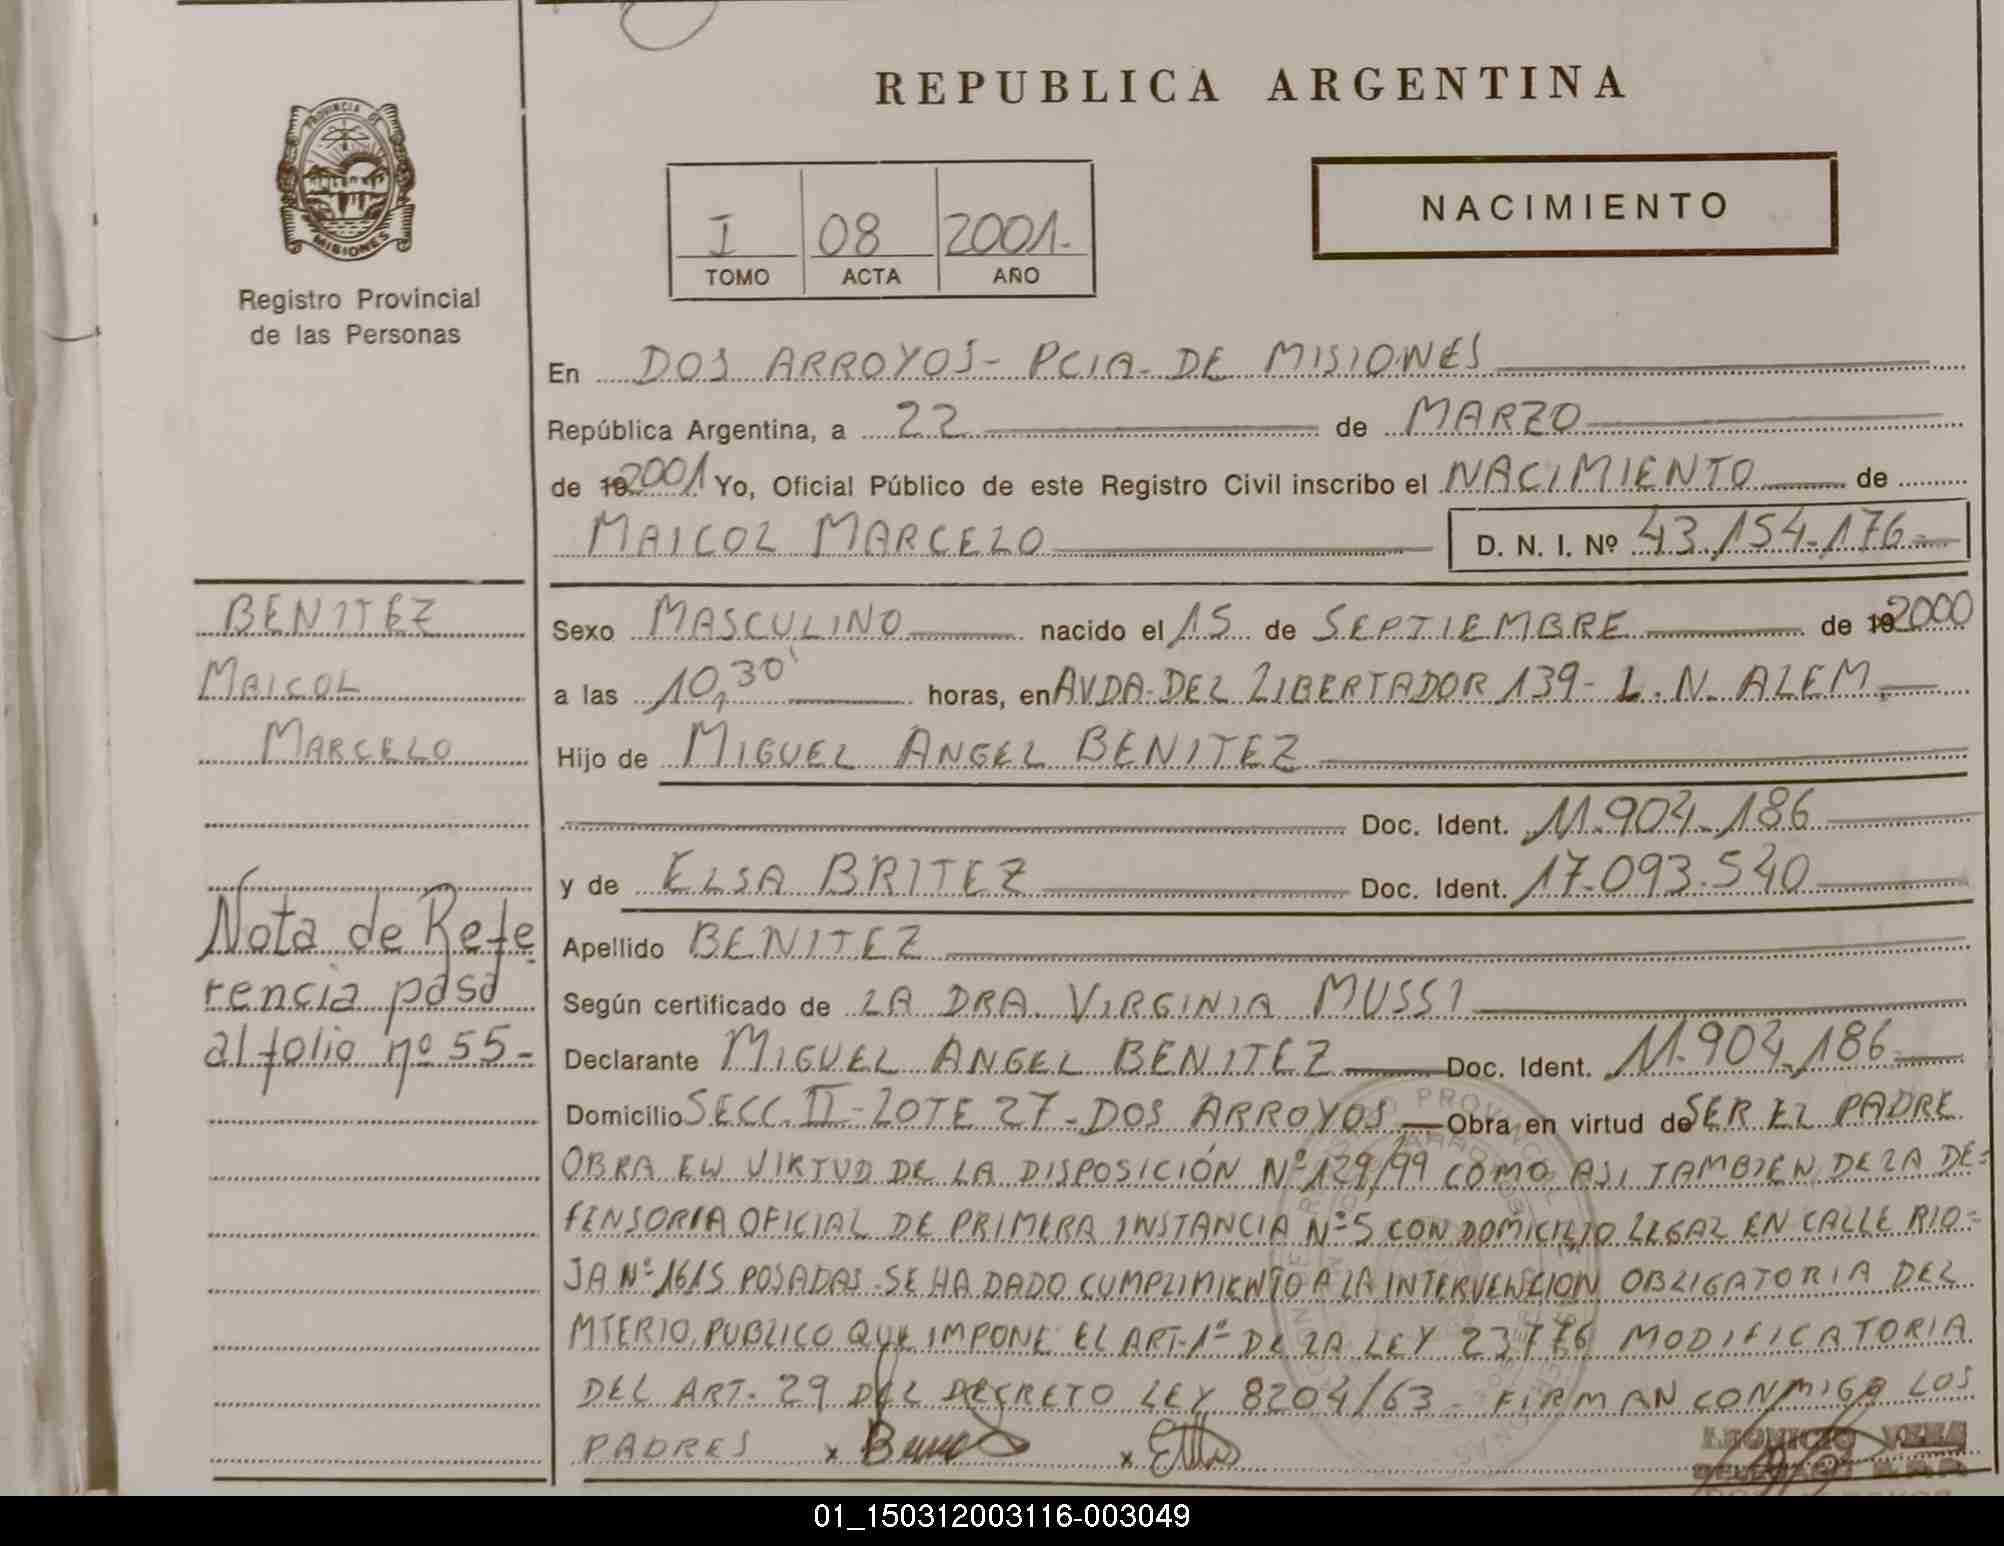 REPUBLICA ARGENTINA
PROVINCIA DE
MISIONES
Registro Provincial
de las Personas
NACIMIENTO
I 08 2001.
TOMO ACTA AÑO
En DOS ARROYOS - PCIA. DE MISIONES
República Argentina, a 22 de MARZO
de 19 2001 Yo, Oficial Público de este Registro Civil inscribo el NACIMIENTO de
MAICOL MARCELO D. N. I. Nº 43.154.176
BENITEZ
MAICOL
MARCELO
Nota de Refe
rencia pasa
al folio nº 55-
Sexo MASCULINO nacido el 15 de SEPTIEMBRE de 19 2000
a las 10,30' horas, en AVDA. DEL LIBERTADOR 139- L. N. ALEM.
Hijo de MIGUEL ANGEL BENITEZ
Doc. Ident. 11.904.186
y de ELSA BRITEZ Doc. Ident. 17.093.540
Apellido BENITEZ
Según certificado de LA DRA. VIRGINIA MUSSI
Declarante MIGUEL ANGEL BENITEZ Doc. Ident. 11.904.186
Domicilio SECC. II - LOTE 27 - DOS ARROYOS Obra en virtud de SER EL PADRE
OBRA EN VIRTUD DE LA DISPOSICIÓN Nº 129/99 COMO ASI TAMBIEN DE LA DE=
FENSORIA OFICIAL DE PRIMERA INSTANCIA Nº 5 CON DOMICILIO LEGAL EN CALLE RIO=
JA Nº 1615 POSADAS. SE HA DADO CUMPLIMIENTO A LA INTERVENCION OBLIGATORIA DEL
MTERIO. PUBLICO QUE IMPONE EL ART. 1º DE LA LEY 23776 MODIFICATORIA
DEL ART. 29 DEL DECRETO LEY 8204/63 - FIRMAN CONMIGO LOS
PADRES x x
01_150312003116-003049